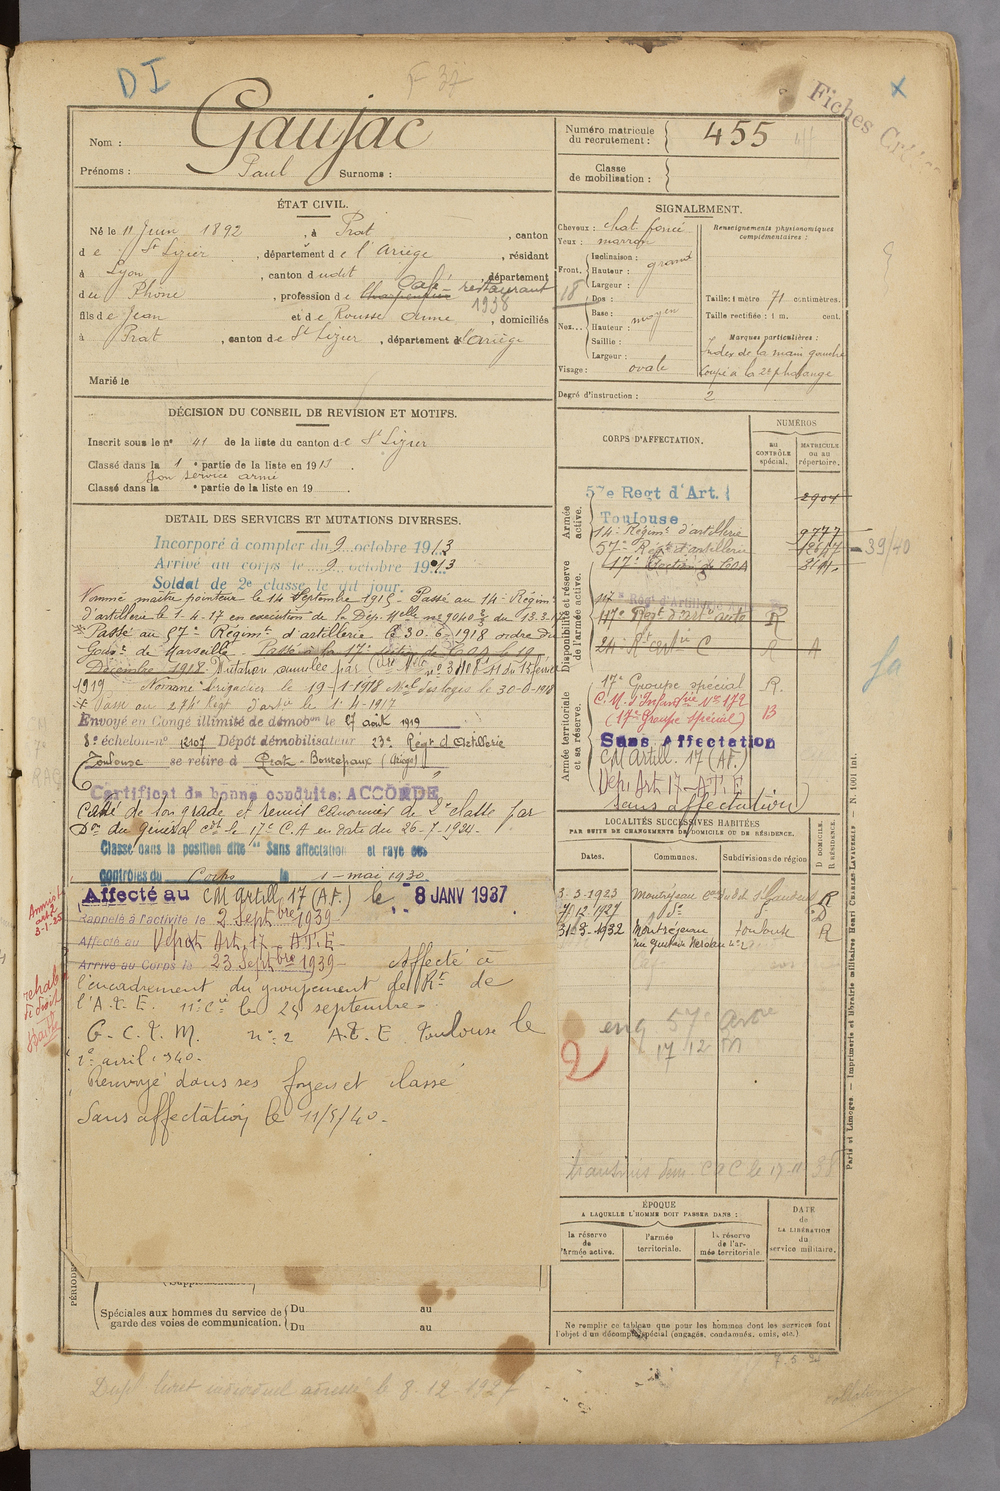 DI
F 37
x
Fiches
Nom : Gaujac
Prénoms : Paul Surnoms :
Numéro matricule du recrutement : 455
Classe de mobilisation :
ÉTAT CIVIL.
Né le 11 Juin 1892, à Prat, canton
de St Lizier, département de l'Ariège, résidant
à Lyon, canton dudit, département
du Rhône, profession de Charpentier Café-restaurant
1938
fils de Jean et de Rousse, domiciliés
à Prat, canton de St Lizier, département de l'Ariège
Marié le
SIGNALEMENT.
Cheveux : chat. foncé
Yeux : marron
Front. Inclinaison :
Hauteur : grand
Largeur :
18
Nez... Dos :
Base :
Hauteur : moyen
Saillie :
Largeur :
Visage : ovale
Renseignements physionomiques complémentaires :
Taille : 1 mètre 71 centimètres.
Taille rectifiée : 1 m. cent.
Marques particulières :
Index de la main gauche
coupé à la 2e phalange
Degré d'instruction : 2
DÉCISION DU CONSEIL DE REVISION ET MOTIFS.
Inscrit sous le n° 41 de la liste du canton de St Lizier
Classé dans la 1e partie de la liste en 1913.
Bon service armé
Classé dans la e partie de la liste en 19 .
CORPS D'AFFECTATION.
NUMÉROS
au CONTRÔLE spécial.
MATRICULE ou au répertoire.
Armée active.
57e Regt d'Art. 2904
Toulouse
14e Régimt d'artillerie 9777
57e Régt d'artillerie
17e Section de COA
39/40
Disponibilité et réserve de l'armée active.
117e Régt d'Artillerie
117e Regt d'art. auto R
24e
A
Armée territoriale et sa réserve.
17e Groupe spécial R.
C. M. d'Infanterie No 179
(17e Groupe spécial) B
Sans Affectation
CM Artill. 17 (A.F.)
Dép. Art. 17 - AT.E
Sans affectation
DETAIL DES SERVICES ET MUTATIONS DIVERSES.
Incorporé à compter du 9 octobre 1913
Arrivé au corps le 9 octobre 1913
Soldat de 2e classe le dit jour.
Nommé maître pointeur le 14 Septembre 1915 - Passé au 14e Régim
d'artillerie le 1-4-17 en exécution de la Dép. Melle no 9040 3/3 du 13.3.17
Passé au 57e Régimt d'artillerie le 30.6-1918 ordre du
Gouvr de Marseille. Passé à la 17e Section de COA le 19
Décembre 1918. Mutation annulée par du 15 février
1919 Nommé brigadier le 19-1-1918 Mal des logis le 30-6-1918
* Passé au 274e Régt d'artie le 1-4-1917
Envoyé en Congé illimité de démobon le 27 août 1919
8e échelon-n° 12107 Dépôt démobilisateur 23e Régt d'Artillerie
Toulouse se retire à Prat-Bonrepaux (Ariège)
Certificat de bonne conduite: ACCORDÉ
Cassé de son grade et remis canonnier de 2e classe par
Don du général cdt le 17e C.A en date du 26-7-1924.
Classé dans la position dite "Sans affectation et rayé des
contrôles du Corps le 1 mai 1930
Affecté au CM Artill. 17 (A.F.) le 8 JANV 1937
Rappelé à l'activité le 2 Septbre 1939
Affecté au Dépôt Art. 17 - AT.E
Arrivé au Corps le 23 Septbre 1939 - Affecté à
l'encadrement du groupement de Rt de
l'A.T.E. 11e Cie le 25 septembre
G.C.T.M. n°2 A.T.E Toulouse le
1er avril 1940.
Renvoyé dans ses foyers et classé
Sans affectation le 11/5/40.
Amnistié
3-1-25
rehab
de droit
LOCALITÉS SUCCESSIVES HABITÉES
PAR SUITE DE CHANGEMENTS DE DOMICILE OU DE RÉSIDENCE.
Dates. Communes. Subdivisions de région D. DOMICILE. R. RÉSIDENCE.
3-3-1923 Montréjeau St Gaudens R
7-12-1927 do do D
31-3-1932 Montréjeau Toulouse R
eng 57e
17 12
2
transmis CAC le 17-11 38
ÉPOQUE
A LAQUELLE L'HOMME DOIT PASSER DANS :
la réserve de l'armée active.
l'armée territoriale.
la réserve de l'armée territoriale.
DATE de LA LIBÉRATION du service militaire.
PÉRIODES
Spéciales aux hommes du service de garde des voies de communication.
Du au
Du au
Ne remplir ce tableau que pour les hommes dont les services font
l'objet d'un décompte spécial (engagés, condamnés, omis, etc.)
Paris et Limoges. — Imprimerie et librairie militaires Henri CHARLES-LAVAUZELLE — N. 1001 int.
Dupl livret individuel adressé le 8-12-1927